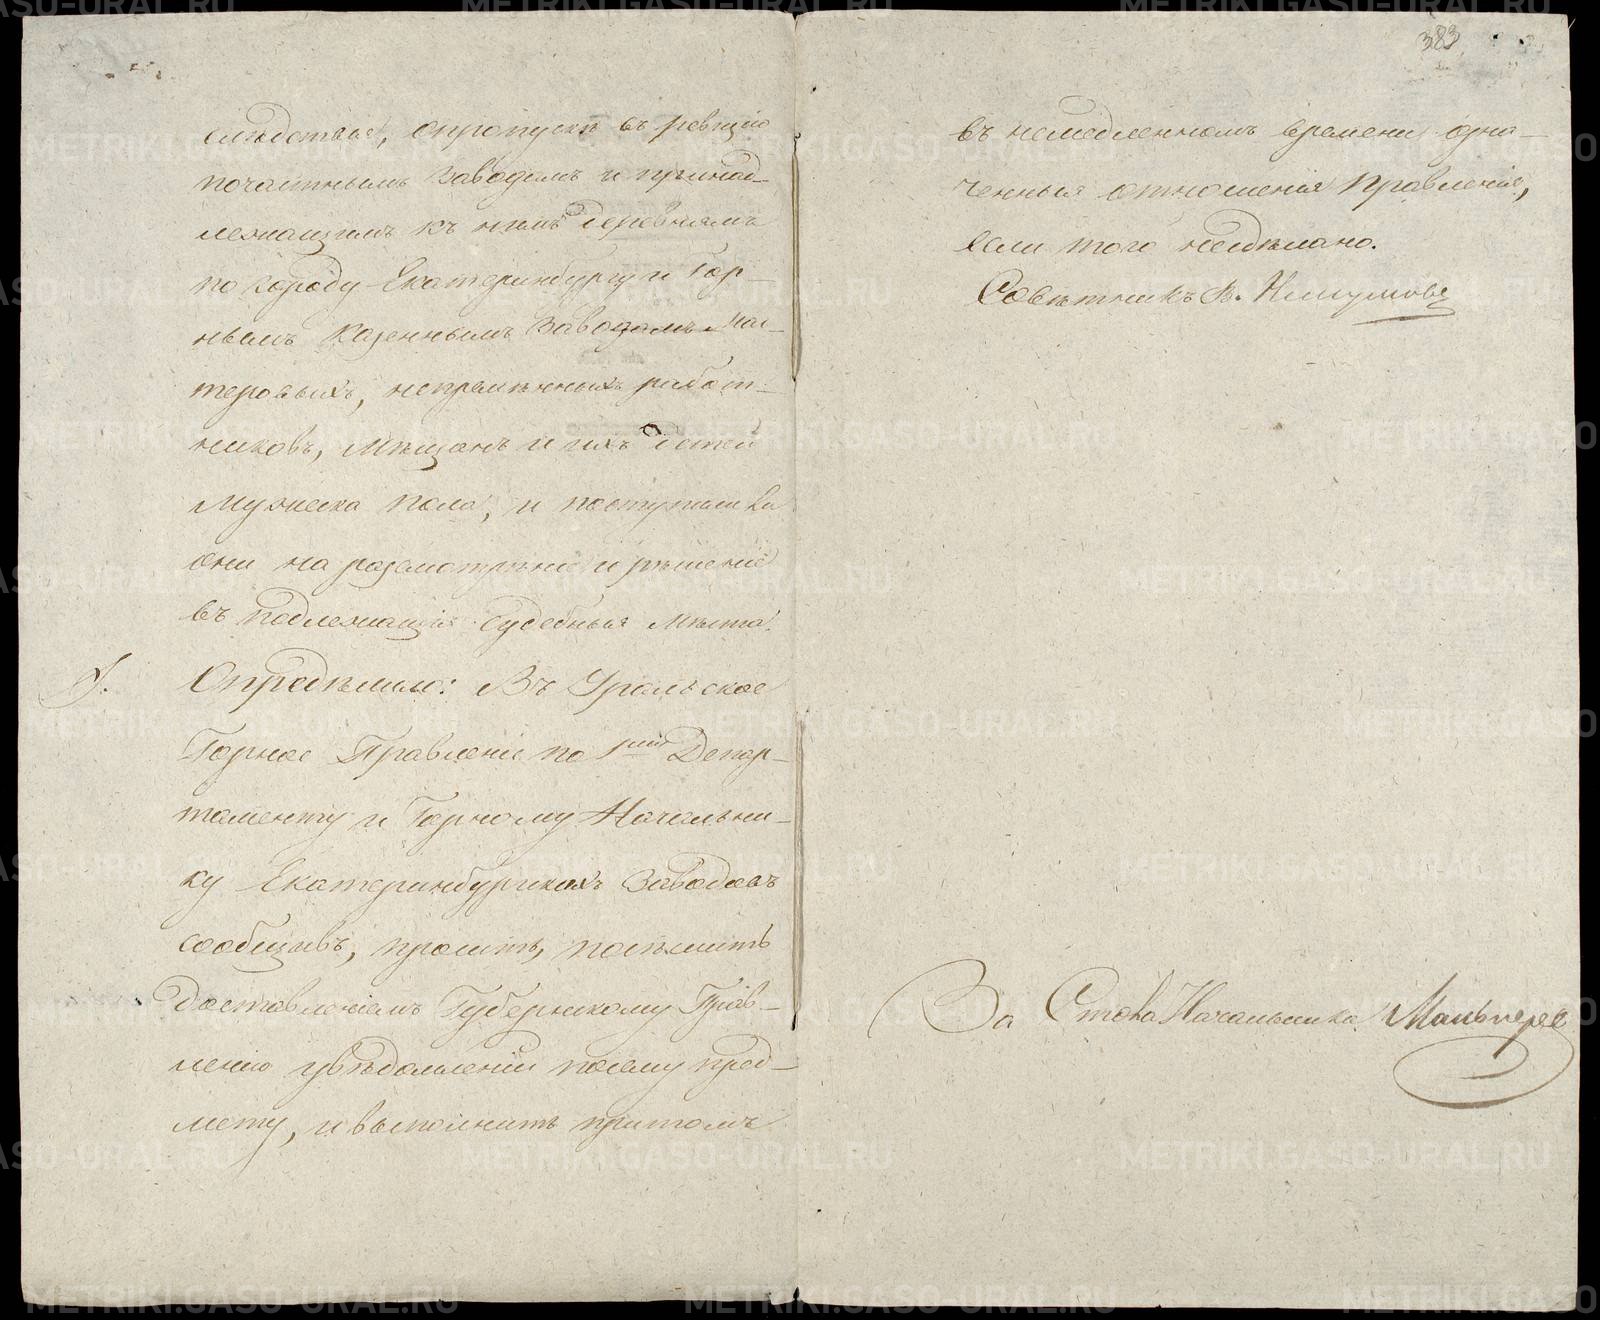 слѣдствіе, опропускѣ въ ревизію
почастнымъ заводамъ и принад-
лежащимъ къ нимъ деревнямъ
по городу Екатеринбургу и Гор-
нымъ казеннымъ заводамъ мас-
теровыхъ, непремѣнныхъ работ-
никовъ, мѣщанъ и ихъ дѣтей
мужеска пола, и поступили ль
они на разсмотрѣніе и рѣшеніе
въ подлежащія Судебныя мѣста.
Опредѣлило: Въ Уральское
Горное Правленіе по 1му Депар-
таменту и Горному Начальни-
ку Екатеринбургскихъ Заводовъ
сообщивъ, просить, поспѣшить
доставленіемъ Губернскому Прав-
ленію увѣдомленій посему пред-
мету, и выполнить притомъ
383
въ немедленномъ времени озна-
ченныя отношенія Правленія,
если того несдѣлано.
Совѣтникъ В.
За Стола Начальника
METRIKI.GASO-URAL.RU